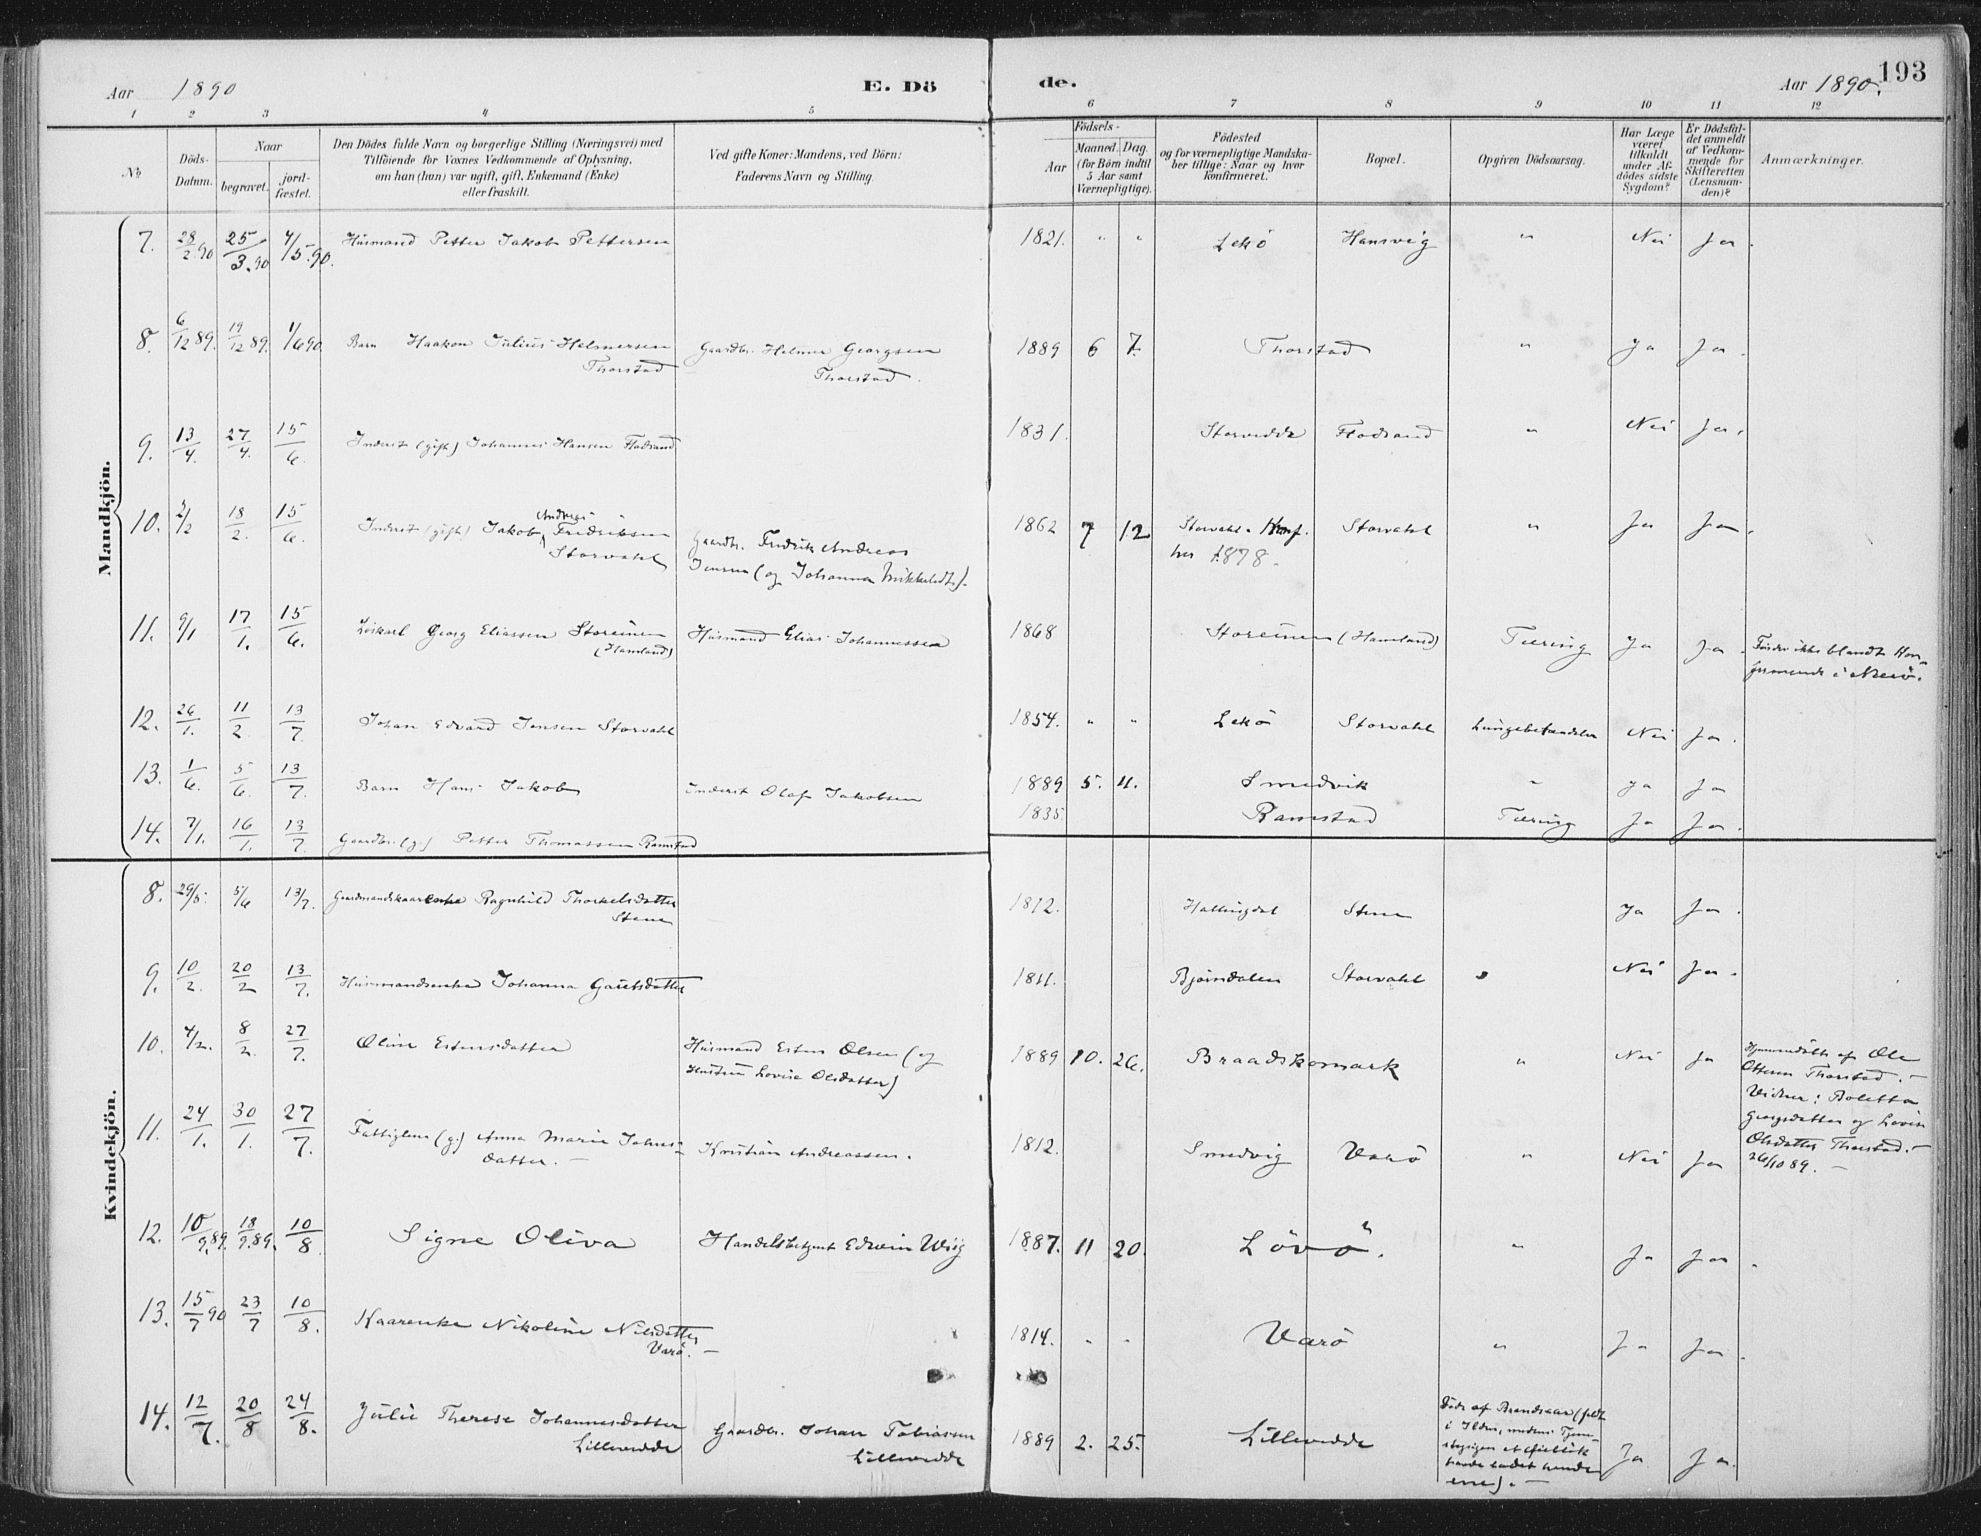 Aar 1890 E. Dö de. Aar 1890. 193
1 2 3 4 5 6 7 8 9 10 11 12
No
Döds-Datum.
Naar
begravet.
jord-fæstet.
Den Dödes fulde Navn og borgerlige Stilling (Næringsvei) med
Tilföiende for Voxnes Vedkommende af Oplysning,
om han (hun) var ugift, gift, Enkemand (Enke)
eller fraskilt.
Ved gifte Koner: Mandens, ved Börn:
Faderens Navn og Stilling.
Födsels-
Aar
Maaned. Dag.
(for Börn indtil
5 Aar samt
Værnepligtige).
Födested
og for værnepligtige Mandska-
ber tillige: Naar og hvor
konfirmeret.
Bopæl.
Opgiven Dödsaarsag.
Har Læge
været
tilkaldt
under Af-
dödes sidste
Sygdom?
Er Dödsfal-
det anmeldt
af Vedkom-
mende for
Skifteretten
(Lensman-
den)?
Anmærkninger.
Mandkjön.
7. 28/2 90 25/3 90 4/5 90. Husmand Petter Jakob Pettersen 1821. " " Lekö Hansvig " Nei Ja.
8. 6/12 89. 19/12 89. 1/6 90 Barn Haakon Julius Helmersen Gaardbr. Helmer Georgsen 1889 6 7. Thorstad " Ja Ja.
Thorstad Thorstad.
9. 13/4. 27/4. 15/6. Inderst (gift) Johannes Hansen Flodsand 1831. Storvedde Flodsand " Nei Ja.
10. 2/2 18/2. 15/6. Inderst (gift) Jakob Andreas Fredriksen 1862 7 12 Storvahl. Konf. Storvahl " Ja Ja.
Storvahl Gaardbr. Fredrik Andreas her 1878.
Jensen (og Johanna Mikkelsdtr).
11. 9/1 17/1. 15/6. Löskarl Georg Eliassen Storeinen Husmand Elias Johannessen 1868 Storeinen (Hamland) Tæring Ja Ja.
(Hamland) Findes ikke blandt Kon-
firmerede i Nærö.
12. 26/1. 11/2 13/7. Johan Edvard Jensen Storvahl 1854. " " Lekö Storvahl Lungebetændelse Nei Ja.
13. 1/6. 5/6. 13/7. Barn Hans Jakob Inderst Olaf Jakobsen 1889 5. 4. Smedvik " Ja Ja
14. 7/1. 16/1. 13/7. Gaardbr. (g.) Petter Thomassen Ramstad 1835. Ramstad Tæring Ja Ja.
Kvindekjön.
8. 29/5. 5/6 13/7. Gaardmandskaarenke Ragnhild Thorkelsdatter 1812. Hallingdal Stene Ja Ja.
Stene
9. 10/2. 20/2 13/7. Husmandsenke Johanna Garilsdatter 1811. Bjørndalen Storvahl " Nei Ja.
10. 4/2. 8/2. 27/7. Oline Estensdatter Husmand Esten Olsen (og 1889 10. 26. Braadskomark " Nei Ja
Hustru Lovise Olsdatter)
Hjemmedöbt af Ole
Ottersen Thorstad. -
Vidner: Boletta
Georgsdatter og Lovise
Olsdatter Thorstad. -
26/10 89. -
11. 24/1. 30/1. 27/7. Fattiglem (g.) Anna Marie Johns- Kristian Andreassen. 1812. Smedvig Varö " Nei Ja
datter. -
12. 10/9.89. 18/9.89. 10/8. Signe Oliva Handelsbetjent Edwin Wiig 1887. 11 20. Lövö. " Ja Ja.
13. 15/7 90 23/7 10/8. Kaarenke Nikoline Nilsdatter 1814. " " Varö " Ja Ja.
Varö. -
14. 12/7. 20/8 24/8. Julie Therese Johannesdatter Gaardbr. Johan Tobiassen 1889 2. 25. Lillevedde Ja Ja.
Lillevedde Lillevedde
Döde af Brandsaar (faldt
i Ilden, medens Tjene-
stepigen et Øieblik
havde ladet hende
ene). -